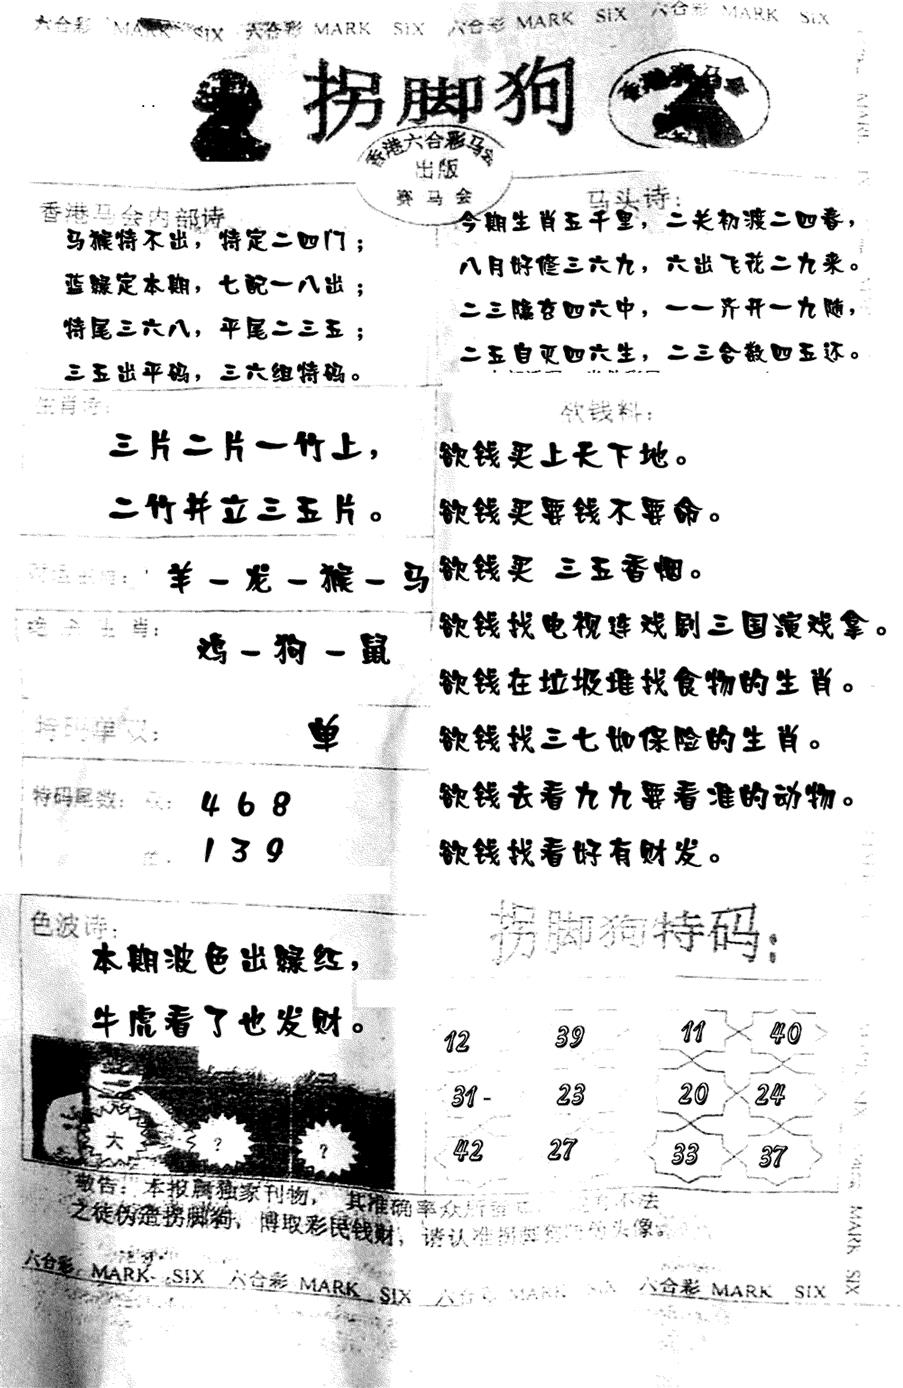 六合彩 MARK SIX 六合彩 MARK SIX 六合彩 MARK SIX 六合彩 MARK SIX
拐脚狗
香港赛马会
香港六合彩马会
出版
赛马会
香港马会内部诗
马猴特不出，特定二四门；
蓝绿定本期，七配一八出；
特尾三六八，平尾二三五；
三五出平码，三六组特码。
马头诗：
今期生肖五千里，二关初渡二四春，
八月好修三六九，六出飞花二九来。
二三隐玄四六中，一一齐开一九随，
二五自灭四六生，二三合数四五还。
生肖诗：
三片二片一竹上，
二竹并立三五片。
羊－龙－猴－马
生肖：
鸡－狗－鼠
特码单双：
单
特码尾数：双：
4 6 8
1 3 9
欲钱料：
欲钱买上天下地。
欲钱买要钱不要命。
欲钱买 三五香烟。
欲钱找电视连戏剧三国演戏拿。
欲钱在垃圾堆找食物的生肖。
欲钱找三七如保险的生肖。
欲钱去看九九要看准的动物。
欲钱找看好有财发。
色波诗：
本期波色出绿红，
牛虎看了也发财。
大 ? ?
拐脚狗特码：
12 39 11 40
31- 23 20 24
42 27 33 37
敬告：本报属独家刊物，其准确率众所 不法
之徒伪造拐脚狗，博取彩民钱财，请认准拐脚 头像。
六合彩 MARK SIX 六合彩 MARK SIX 六合彩 MARK SIX 六合彩 MARK SIX
MARK SIX